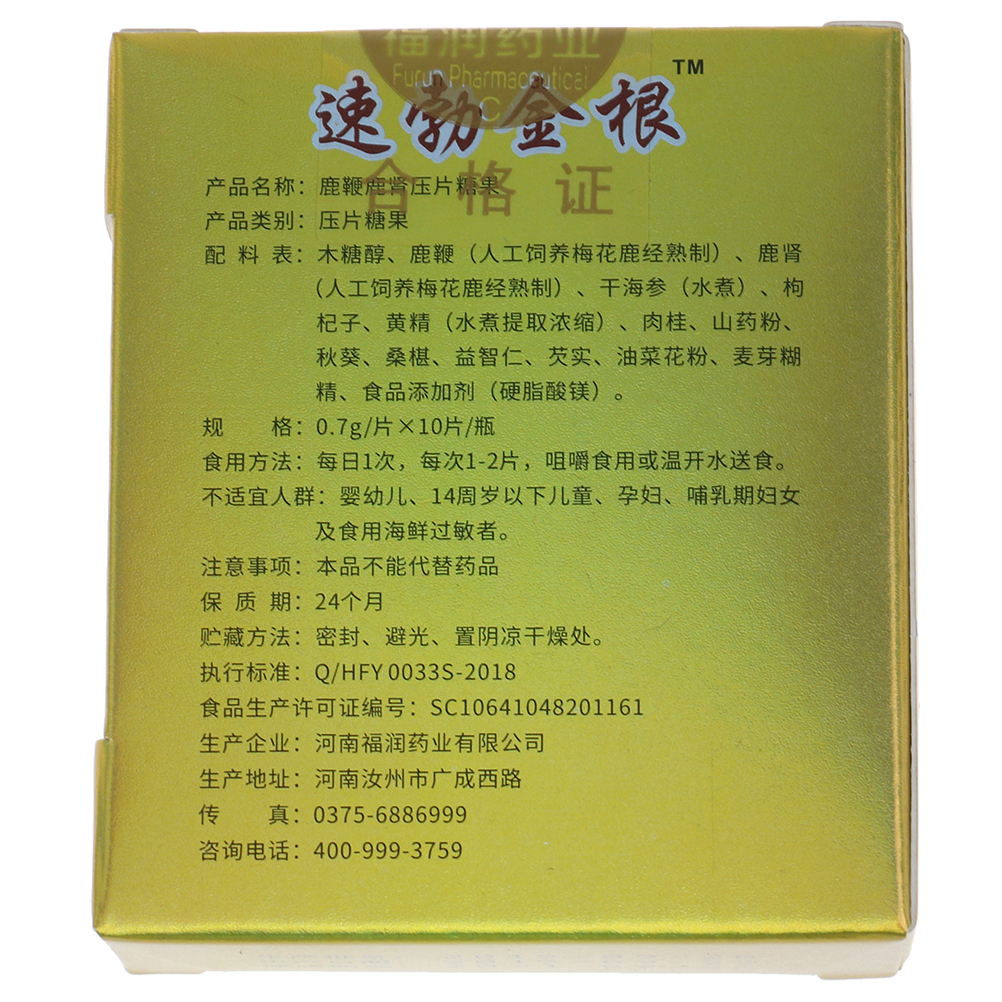 福润药业
Furun Pharmaceutical
C
速勃金根 TM
合格证
产品名称：鹿鞭鹿肾压片糖果
产品类别：压片糖果
配料表：木糖醇、鹿鞭（人工饲养梅花鹿经熟制）、鹿肾
(人工饲养梅花鹿经熟制）、干海参（水煮）、枸
杞子、黄精（水煮提取浓缩）、肉桂、山药粉、
秋葵、桑椹、益智仁、芡实、油菜花粉、麦芽糊
精、食品添加剂（硬脂酸镁）。
规格：0.7g/片×10片/瓶
食用方法：每日1次，每次1-2片，咀嚼食用或温开水送食。
不适宜人群：婴幼儿、14周岁以下儿童、孕妇、哺乳期妇女
及食用海鲜过敏者。
注意事项：本品不能代替药品
保质期：24个月
贮藏方法：密封、避光、置阴凉干燥处。
执行标准：Q/HFY 0033S-2018
食品生产许可证编号：SC10641048201161
生产企业：河南福润药业有限公司
生产地址：河南汝州市广成西路
传真：0375-6886999
咨询电话：400-999-3759